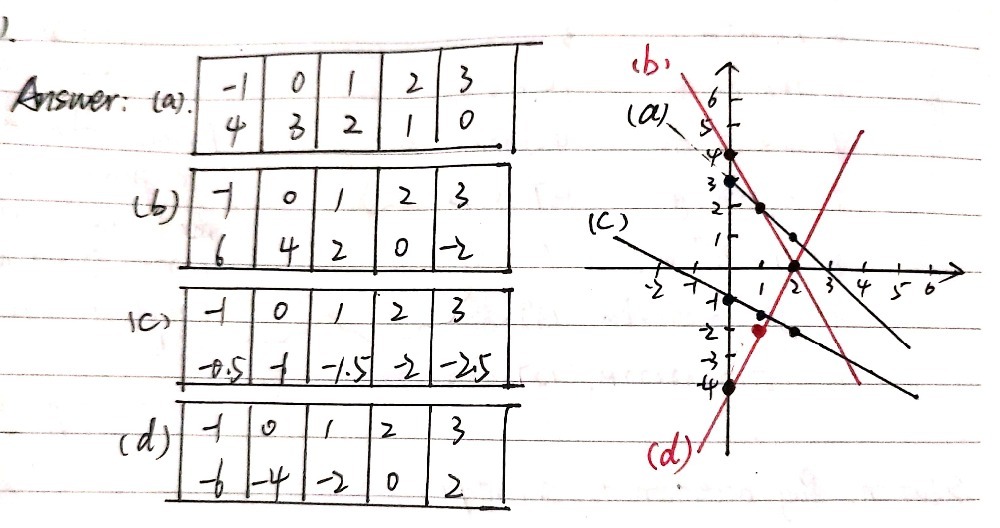 Answer: (a). -1 0 1 2 3
4 3 2 1 0
(b) -1 0 1 2 3
6 4 2 0 -2
(c) -1 0 1 2 3
-0.5 -1 -1.5 -2 -2.5
(d) -1 0 1 2 3
-6 -4 -2 0 2
(b)
(a)
(c)
(d)
6
5
4
3
2
1
-2 -1 1 2 3 4 5 6
-1
-2
-3
-4